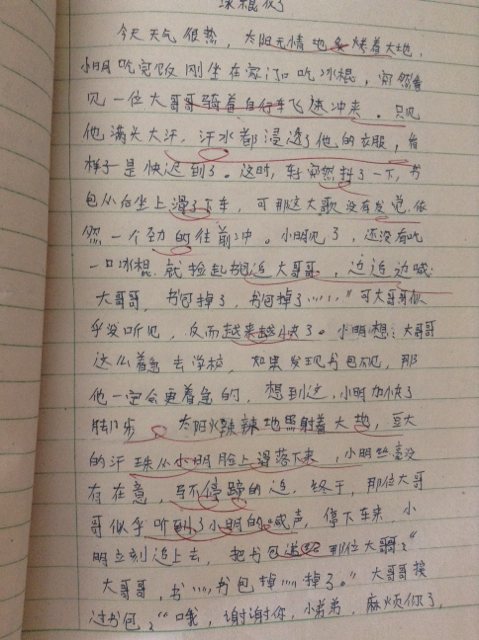 冰棍化了
今天天气很热，太阳无情地烤着大地，
小明吃完饭刚坐在家门口吃冰棍，突然看
见一位大哥哥骑着自行车飞速冲来。只见
他满头大汗，汗水都浸透了他的衣服，看
样子是快迟到了。这时，车突然抖了一下，书
包从后坐上滑了下车，可那这大歌没有发觉，依
然一个劲的往前冲。小明见了，还没有吃
一口冰棍就捡起书包追大哥哥，边追边喊：
大哥哥，书包掉了，书包掉了……"可大哥哥似
乎没听见，反而越来越快了。小明想：大哥哥
这么着急去学校，如果发现书包不见，那
他一定会更着急的，想到这，小明加快了
脚步。太阳火辣辣地照射着大地，豆大
的汗珠从小明脸上滑落下来，小明丝毫没
有在意，写不停蹄的追。终于，那位大哥
哥似乎听到了小明的喊声，停下车来，小
明立刻追上去，把书包递给那位大哥："
大哥哥，书……书包掉……掉了。"大哥哥接
过书包："哦，谢谢你，小弟弟，麻烦你了，